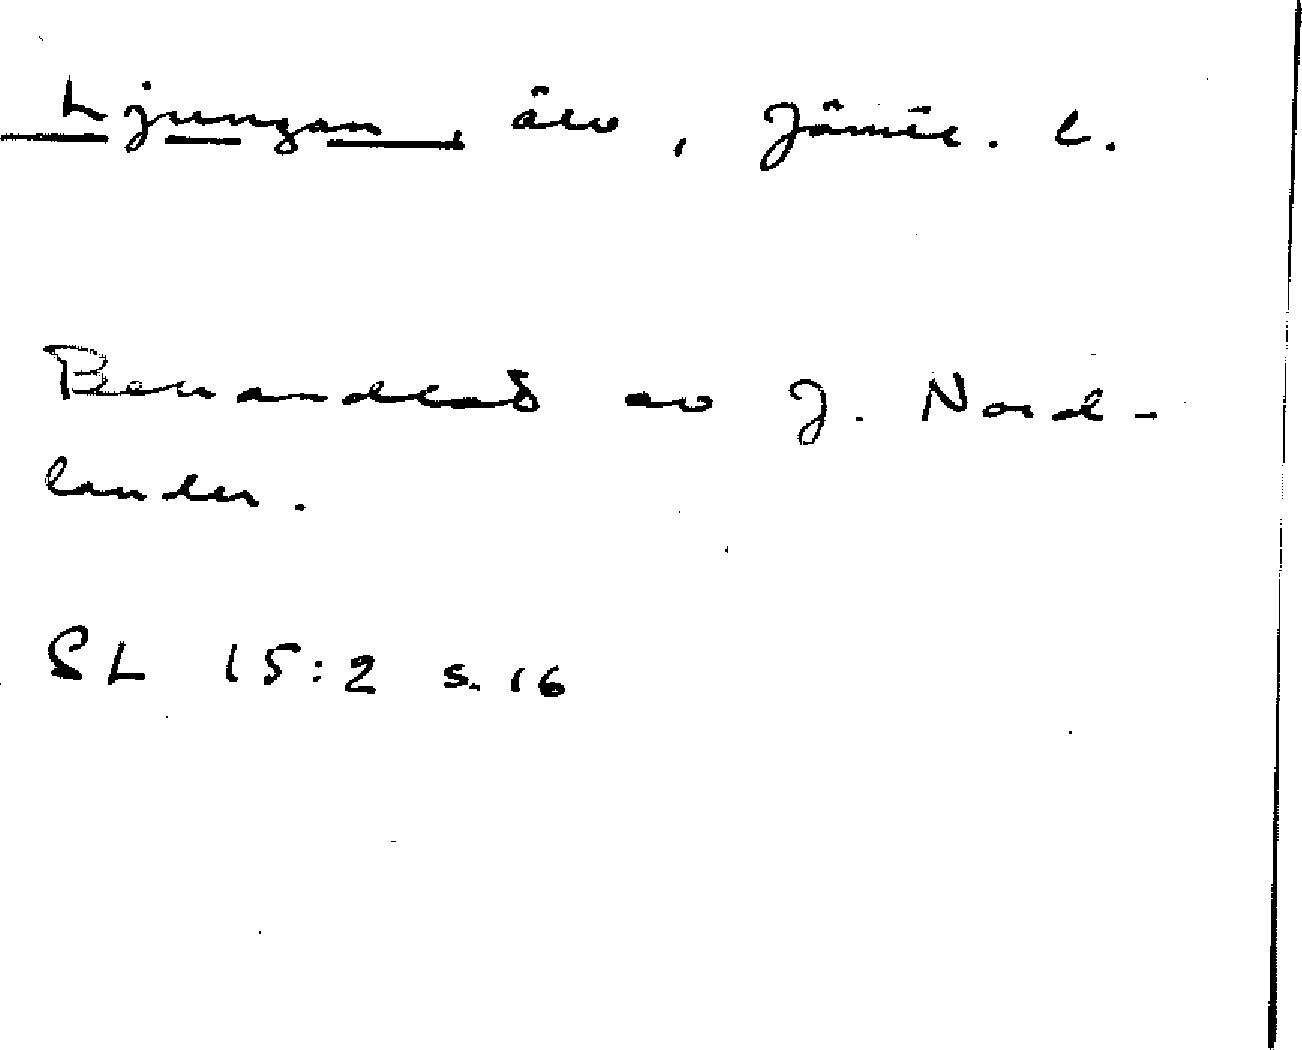 Ljungan, älv, Jämtl. l.
Behandlad av J. Nord-
lander.
SL 15:2 s. 16